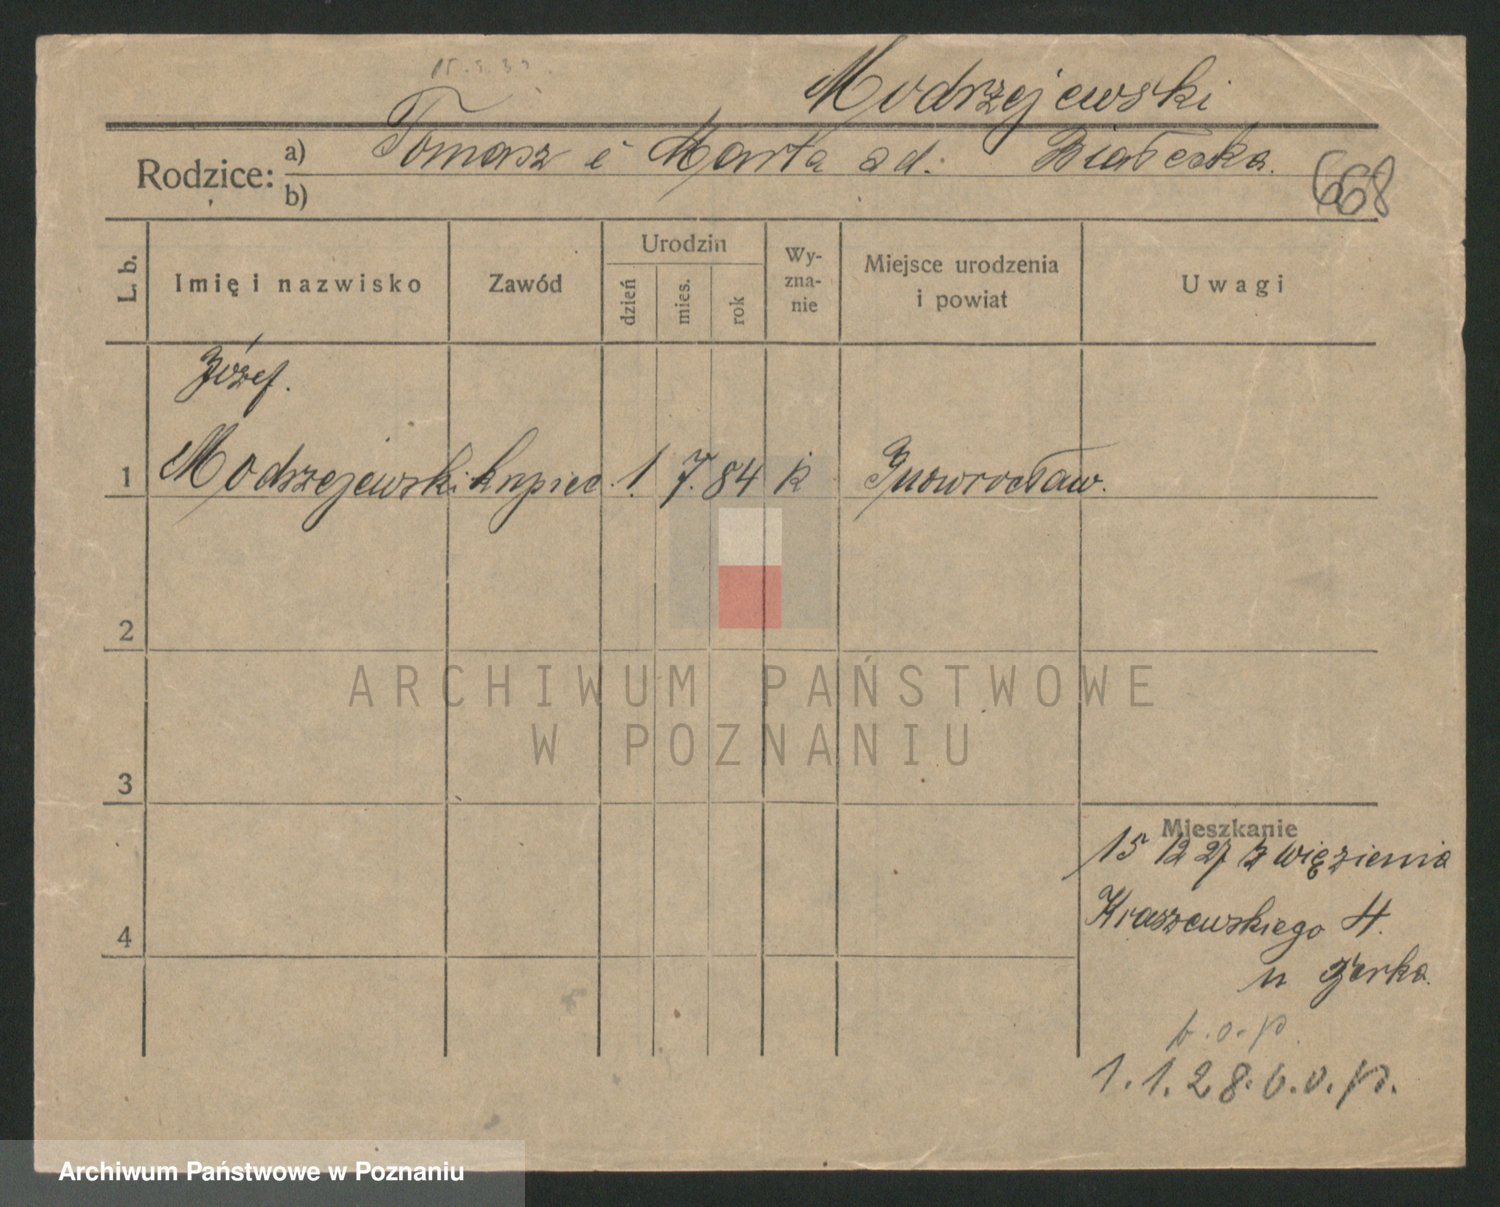 15.5.33.
Modrzejewski
Rodzice:
a) Tomasz i Marta od: Białecka.
b)
668
L. b.
Imię i nazwisko
Zawód
Urodzin
dzień
mies.
rok
Wy-
zna-
nie
Miejsce urodzenia
i powiat
Uwagi
Józef.
1 Modrzejewski kupiec. 1. 7. 84 k Inowrocław.
2
ARCHIWUM PAŃSTWOWE
W POZNANIU
3
Mieszkanie
15 12 27 z więzienia
Kraszewskiego 4.
4
u Żerka.
b.o.p.
1.1.28. b.o.p.
Archiwum Państwowe w Poznaniu